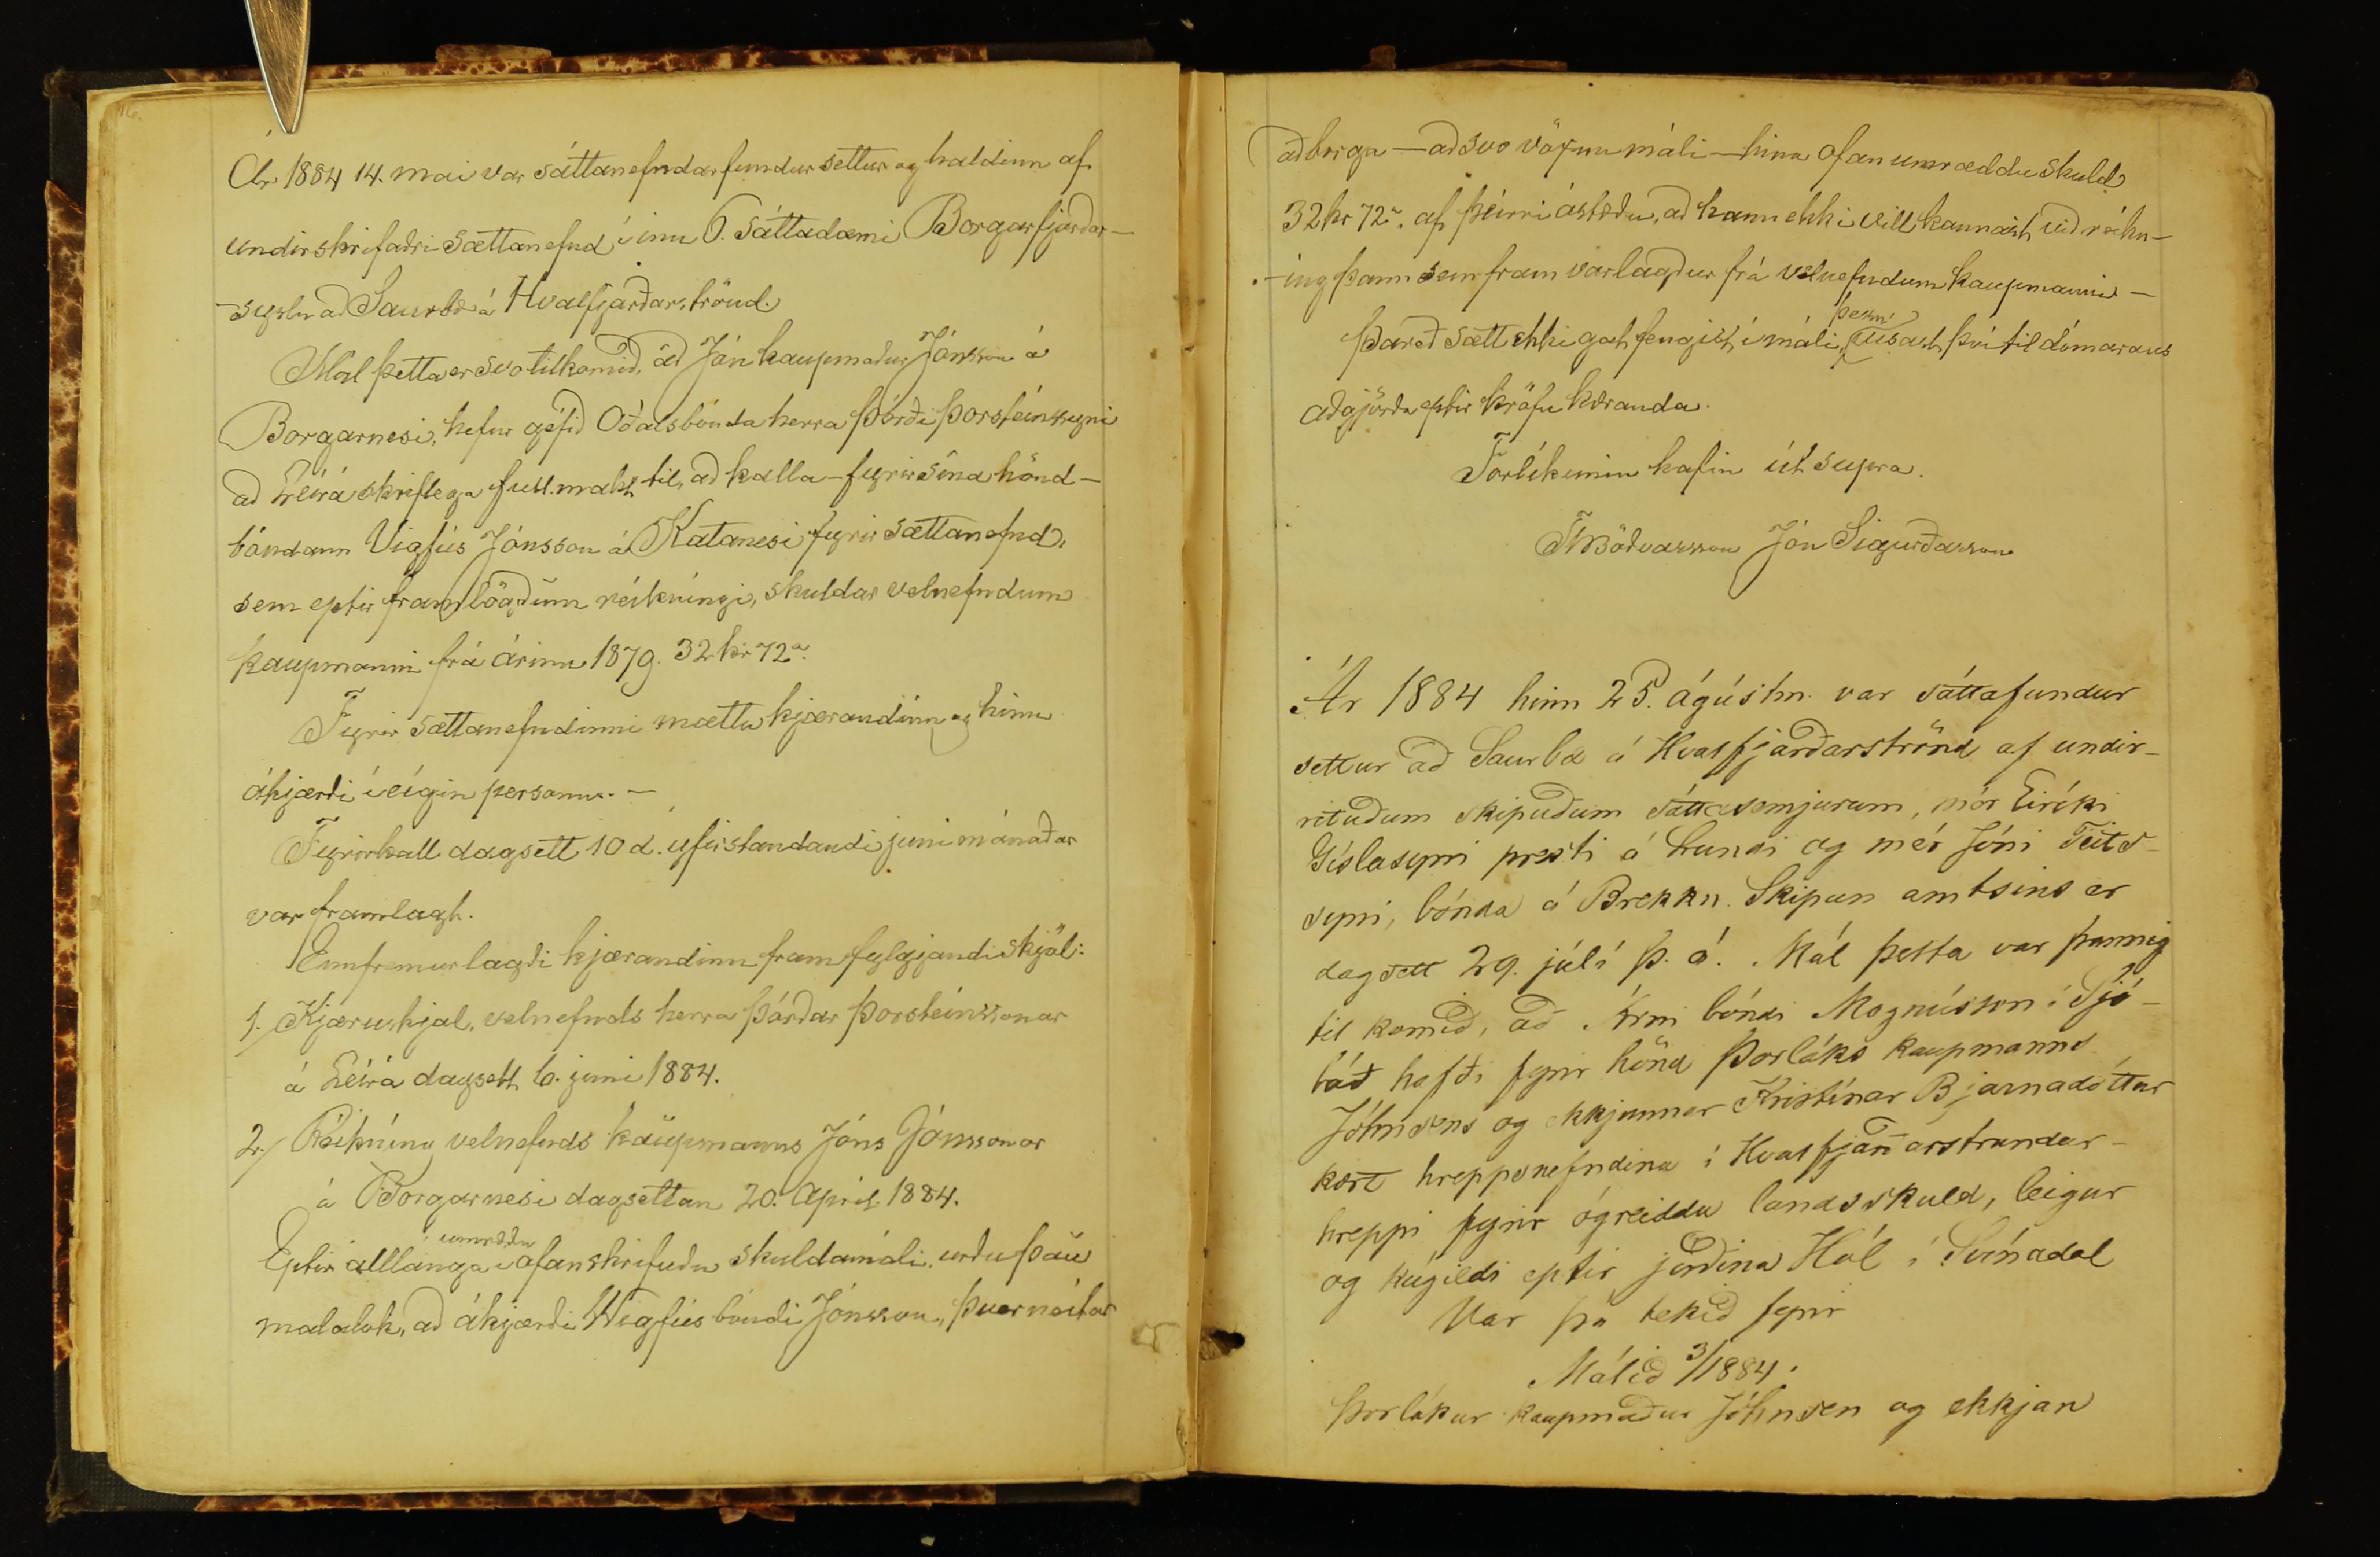 16.
Ár 1884 14. mai var sáttanefndarfundur settur og haldinn af
undirskrifaðri sættanefnd í inu 6. sáttadæmi Borgarfjarðar-
-syslu að Saurbæ á Hvalfjarðarströnd
Mál þetta er svo tilkomið, að Jón kaupmaður Jónsson á
Borgarnesi, hefur géfið Óðalsbónda herra Þórði Þorsteinssyni
að Leirá skriflega fullmakt til, að kalla - fyrir sína hönd -
bóndann Vigfús Jónsson á Katanesi fyrir sættanefnd,
sem eptir framlögðum réikningi, skuldar velnefndum
kaupmanni frá árinu 1879. 32 kr 72 a.
Fyrir sættanefndinni mættu kjærandinn og hinn
ákjærði í eigin personu. -
Fyrirkall dagsett 10 d. yfirstandandi juni mánaðar
var framlagt.
Ennfremur lagði kjærandinn fram fylgjandi skjöl:
1. Kjæruskjal, velnefnds herra Þórðar Þorsteinssonar
á Leirá dagsett 6. juni 1884.
2. Réikníng velnefnds kaupmanns Jóns Jónssonar
á Borgarnesi dagsettan 20. April 1884.
umræðu
Eptir alllanga í ofanskrifuðu skuldamáli, urðu þau
malalok, að ákjærði Wigfús bóndi Jónsson, þverneitar
að borga - að svo vöxnu máli - hina ofanumræddu skuld
32 kr 72 a. af þeirri ástæðu, að hann ekki vill kannast við réikn-
-ing þann sem fram varlagður frá velnefndum kaupmanni -
þessu
Þareð sætt ekki gat fengist í máli, vísast því til dómarans
aðgjörða eptir kröfu kæranda.
Forlikunin hafin út supra.
Th Böðvarsson Jón Sigurðarson
Ár 1884 hinn 25. ágústm. var sáttafundur
settur að Saurbæ á Hvalfjarðarströnd af undir-
rituðum skipuðum sáttasemjurum, mér Eiríki
Gíslasyni presti á Lundi og mér Jóni Teits-
syni, bónda á Brekku. Skipun amtsins er
dagsett 29. júlí þ. á. Mál þetta var þannig
til komið, að Árni bóndi Magnússon í
hafði fyrir hönd Þorláks kaupmanns
Johnsens og ekkjunnar Kristínar Bjarnadóttur
kært hreppsnefndina í Hvalfjarðarstrandar-
hreppi fyrir ógreidda landsskuld, leigur
og kúgildi eptir jörðina Hól í Svínadal
Var þá tekið fyrir
Málið 3/1884.
Þorlákur kaupmaður Johnsen og ekkjan